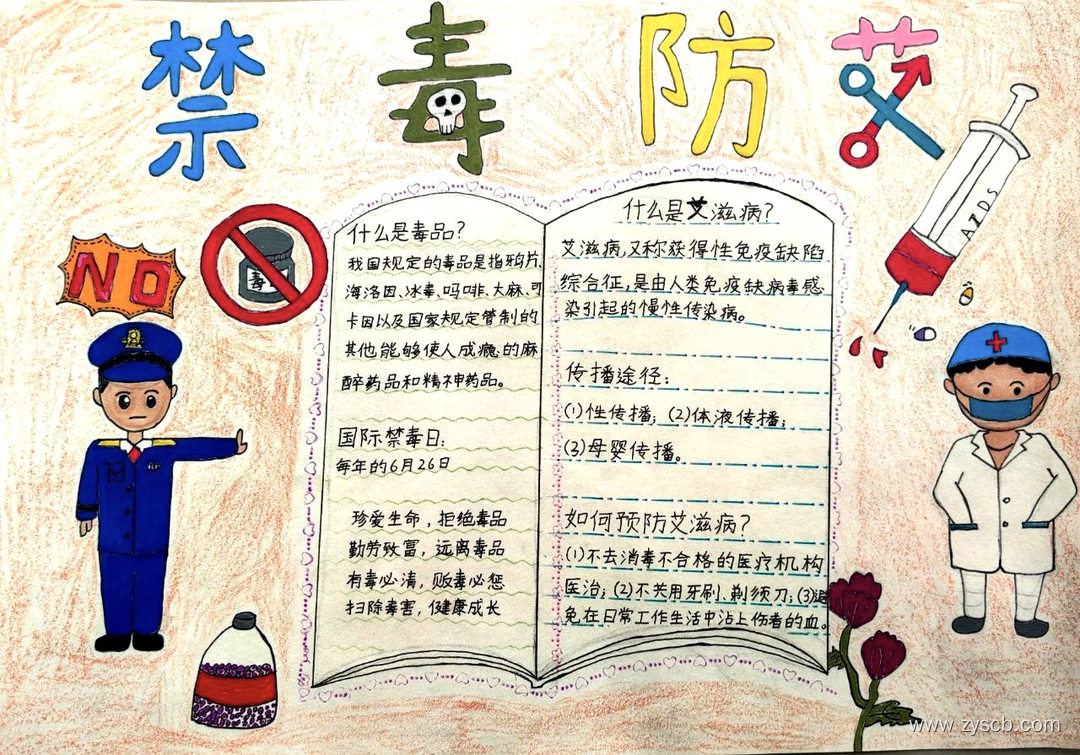 禁毒防艾
NO
毒
AZDS
什么是毒品?
我国规定的毒品是指鸦片、
海洛因、冰毒、吗啡、大麻、可
卡因以及国家规定管制的
其他能够使人成瘾的麻
醉药品和精神药品。
国际禁毒日:
每年的6月26日
珍爱生命,拒绝毒品
勤劳致富,远离毒品
有毒必清,贩毒必惩
扫除毒害,健康成长
什么是艾滋病?
艾滋病,又称获得性免疫缺陷
综合征,是由人类免疫缺病毒感
染引起的慢性传染病。
传播途径:
(1)性传播;(2)体液传播;
(3)母婴传播。
如何预防艾滋病?
(1)不去消毒不合格的医疗机构
医治;(2)不共用牙刷、剃须刀;(3)避
免在日常工作生活中沾上伤者的血。
www.zyscb.com